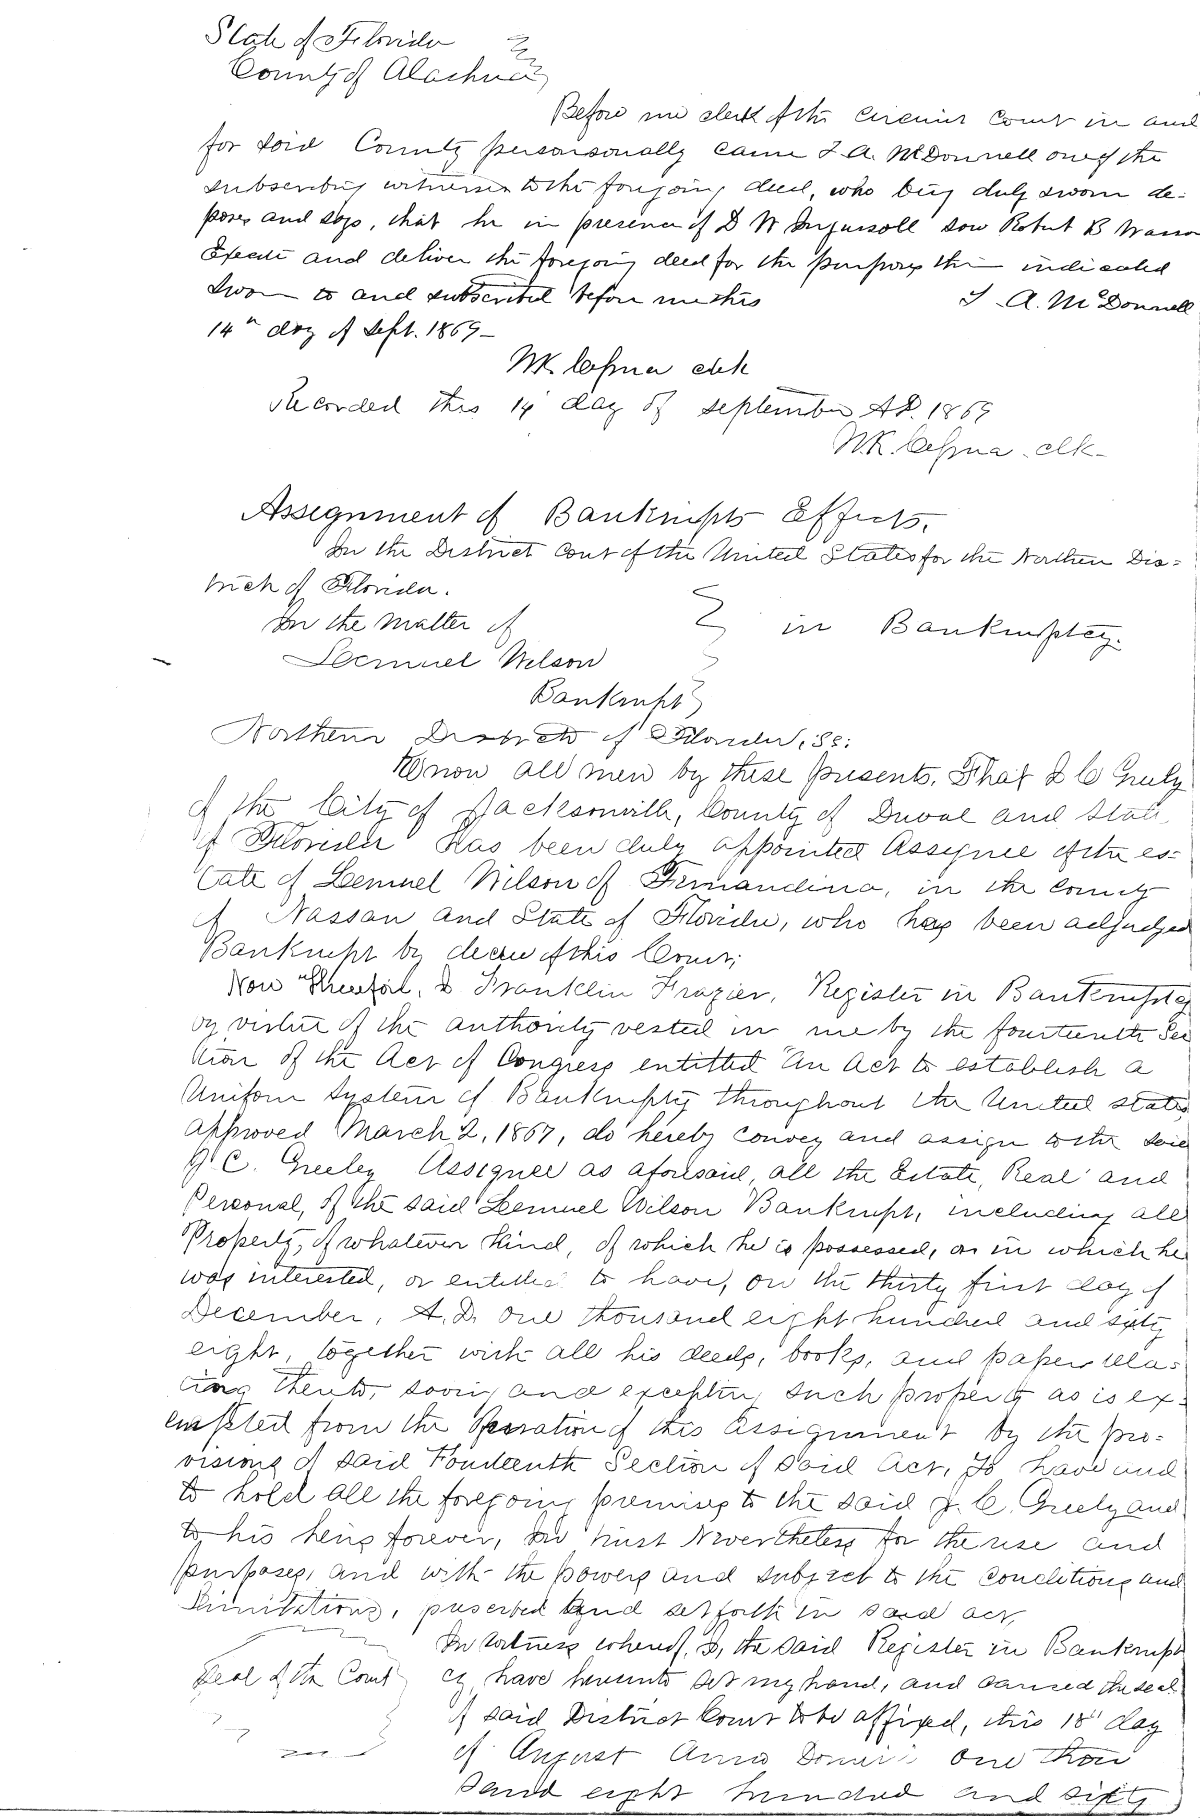 State of Florida
County of Alachua
Before me clerk of the Circuit Court in and
for said County persorsonally came T. A. McDonnell one of the
subscribing witnesses to the foregoing deed, who being duly sworn de-
poses and says, that he in presence of D W Ingersoll saw Robert B Wasson
Execute and deliver the foregoing deed for the purposes therein indicated
Sworn to and subscribed before me this T. A. McDonnell
14th day of Sept. 1869—
W.K. Cessna clk
Recorded this 14 day of September A.D. 1869
W.K. Cessna clk—
Assignment of Bankrupts Effects.
In the District Court of the United States for the Northern Dis-
trict of Florida.
In the matter of
Lemuel Wilson in Bankruptcy.
Bankrupt
Northern District of Florida, SS:
Know all men by these presents, That J C Greely
of the City of Jacksonville, County of Duval and State
of Florida has been duly appointed Assignee of the es-
tate of Lemuel Wilson of Fernandina, in the County
of Nassau and State of Florida, who has been adjudged
Bankrupt by decree of this Court;
Now Therefore, I Franklin Frazier, Register in Bankruptcy
by virtue of the authority vested in me by the fourteenth Sec
tion of the Act of Congress entitled "An Act to establish a
Uniform System of Bankruptcy throughout the United States
approved March 2, 1867, do hereby convey and assign to the said
J. C. Greeley Assignee as aforesaid, all the Estate, Real and
Personal, of the said Lemuel Wilson Bankrupt, including all
Property, of whatever kind, of which he is possessed, or in which he
was interested, or entitled to have, on the thirty first day of
December, A.D. one thousand eight hundred and sixty
eight, together with all his deeds, books, and papers rela-
ting thereto, saving and excepting such property as is ex-
empted from the Operation of this Assignment by the pro-
visions of said Fourteenth Section of said Act, To have and
to hold all the foregoing premises to the said J. C. Greely and
to his heirs forever, In trust Nevertheless for the use and
purposes, and with the powers and subject to the conditions and
Limitations, prescribed and set forth in said act,
In witness whereof, I, the said Register in Bankrupt
Seal of the Court cy have hereunto set my hand, and caused the seal
of said District Court to be affixed, this 18th day
of August Anno Domini one thou
sand eight hundred and sixty